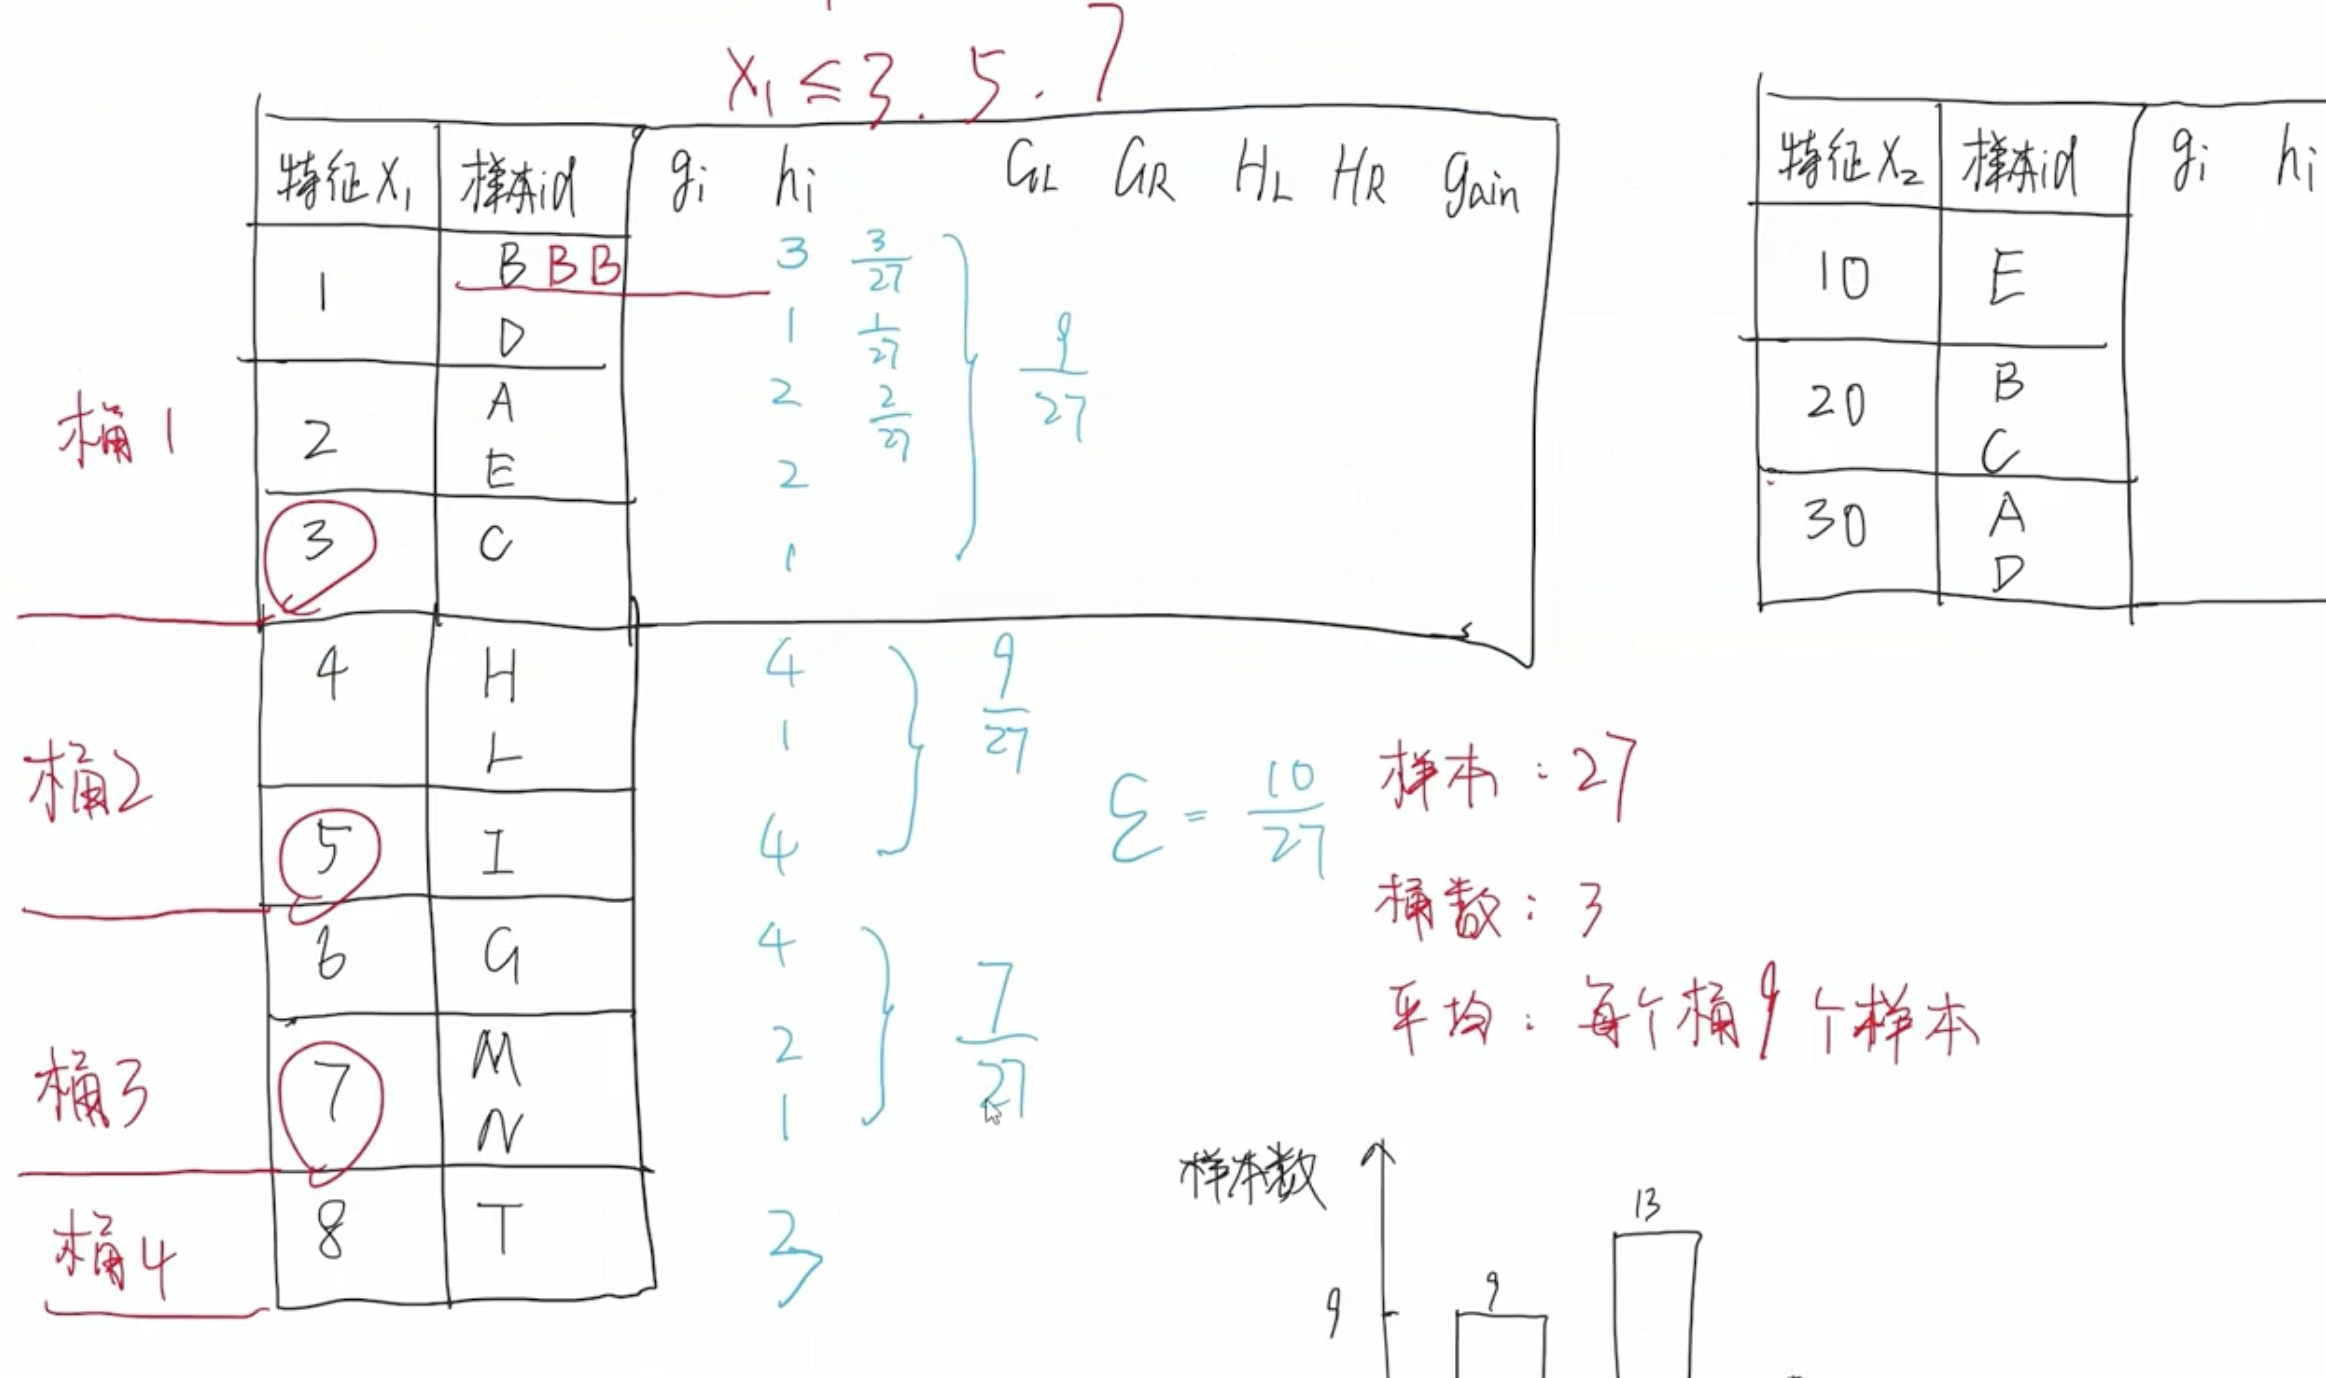 x₁ ≤ 3. 5. 7
特征x₁ 样本id gi hi GL GR HL HR gain
1 B B B 3 3/27
D 1 1/27
2 A 2 2/27
E 2
3 C 1
9/27
桶1
4 H 4
L 1
5 I 4
9/27
桶2
6 G 4
7 M 2
N 1
7/27
桶3
8 T 3
桶4
特征x₂ 样本id gi hi
10 E
20 B
C
30 A
D
ε = 10/27
样本：27
桶数：3
平均：每个桶9个样本
样本数
13
9
9